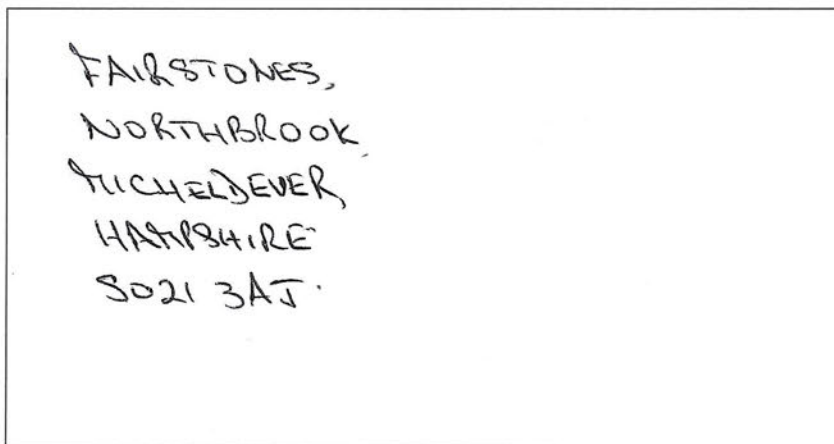 FAIRSTONES,
NORTHBROOK
MICHELDEVER,
HAMPSHIRE
SO21 3AJ.